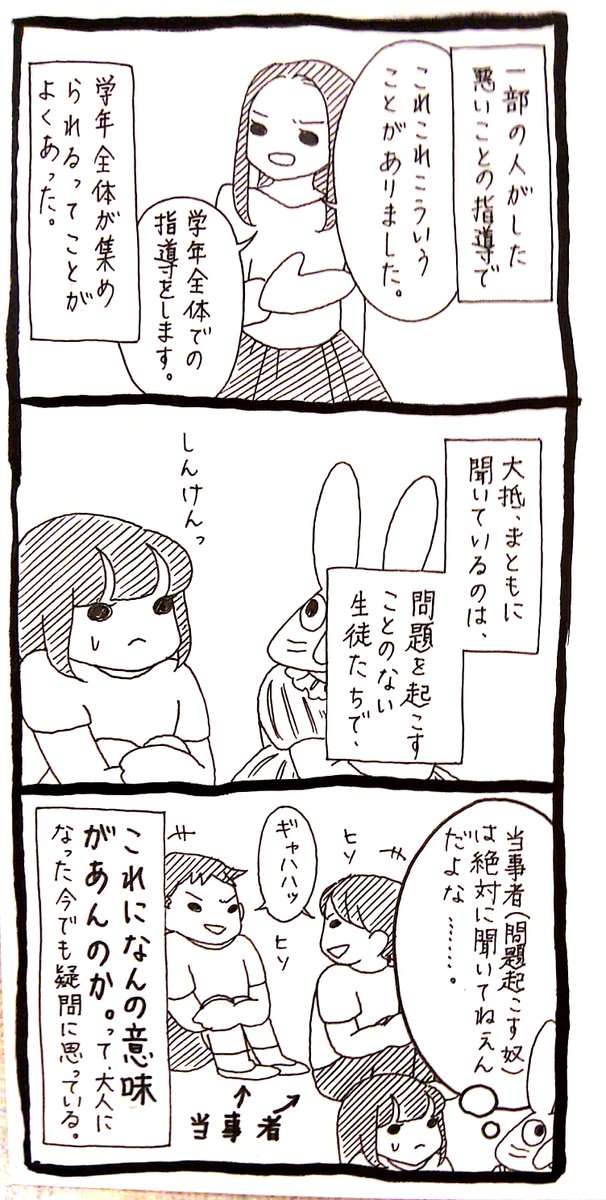 一部の人がした
悪いことの指導で
これこれこういう
ことがありました。
学年全体での
指導をします。
学年全体が集め
られるってことが
よくあった。
大抵、まともに
聞いているのは、
問題を起こす
ことのない
生徒たちで、
しんけんっ
当事者(問題起こす奴)
は絶対に聞いてねえん
だよな………。
ヒソ
ギャハハッ
ヒソ
当事者
これになんの意味
があんのか。って、大人に
なった今でも疑問に思っている。